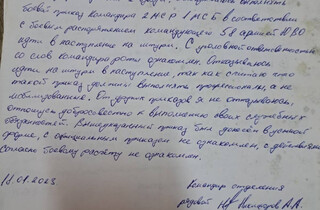 боевой приказ командира 2 МСР 1 МСБ в соответствии
с боевым распоряжением командующего 58 армией ЮВО
идти в наступление на штурм. С уголовной ответственностью
со слов командира роты ознакомлен. Отказываюсь
идти на штурм в наступление, так как считаю что
такой приказ должны выполнять профессионалы, а не
мобилизованные. От других приказов я не отказываюсь,
отношусь добросовестно к выполнению своих служебных
обязанностей. Вышеуказанный приказ был доведён в устной
форме, с официальным приказом не ознакомлен, с действиями
согласно боевому расчёту не ознакомлен.
Командир отделения
18.01.2023
рядовой А.А.